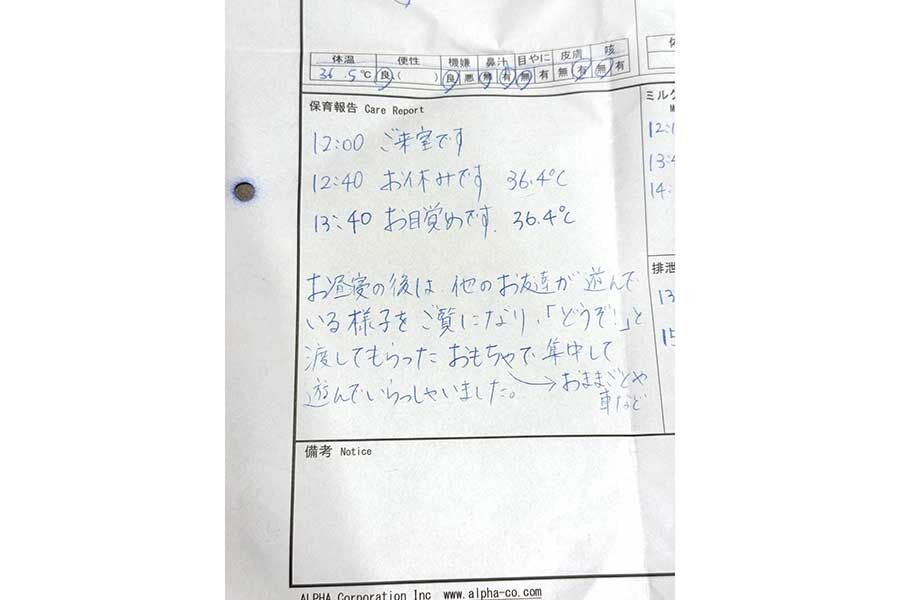 体温 便性 機嫌 鼻汁 目やに 皮膚 咳
36.5℃ 良( ) 良 悪 無 有 無 有 無 有 無 有
保育報告 Care Report
12:00 ご来室です
12:40 お休みです 36.4℃
13:40 お目覚めです 36.4℃
お昼寝の後は 他のお友達が 遊んで
いる様子をご覧になり、「どうぞ!」と
渡してもらったおもちゃで集中して
遊んでいらっしゃいました。→おままごとや
車など
備考 Notice
ALPHA Corporation Inc www.alpha-co.com
ミルク
12:1
13:4
14:
排泄
13
15